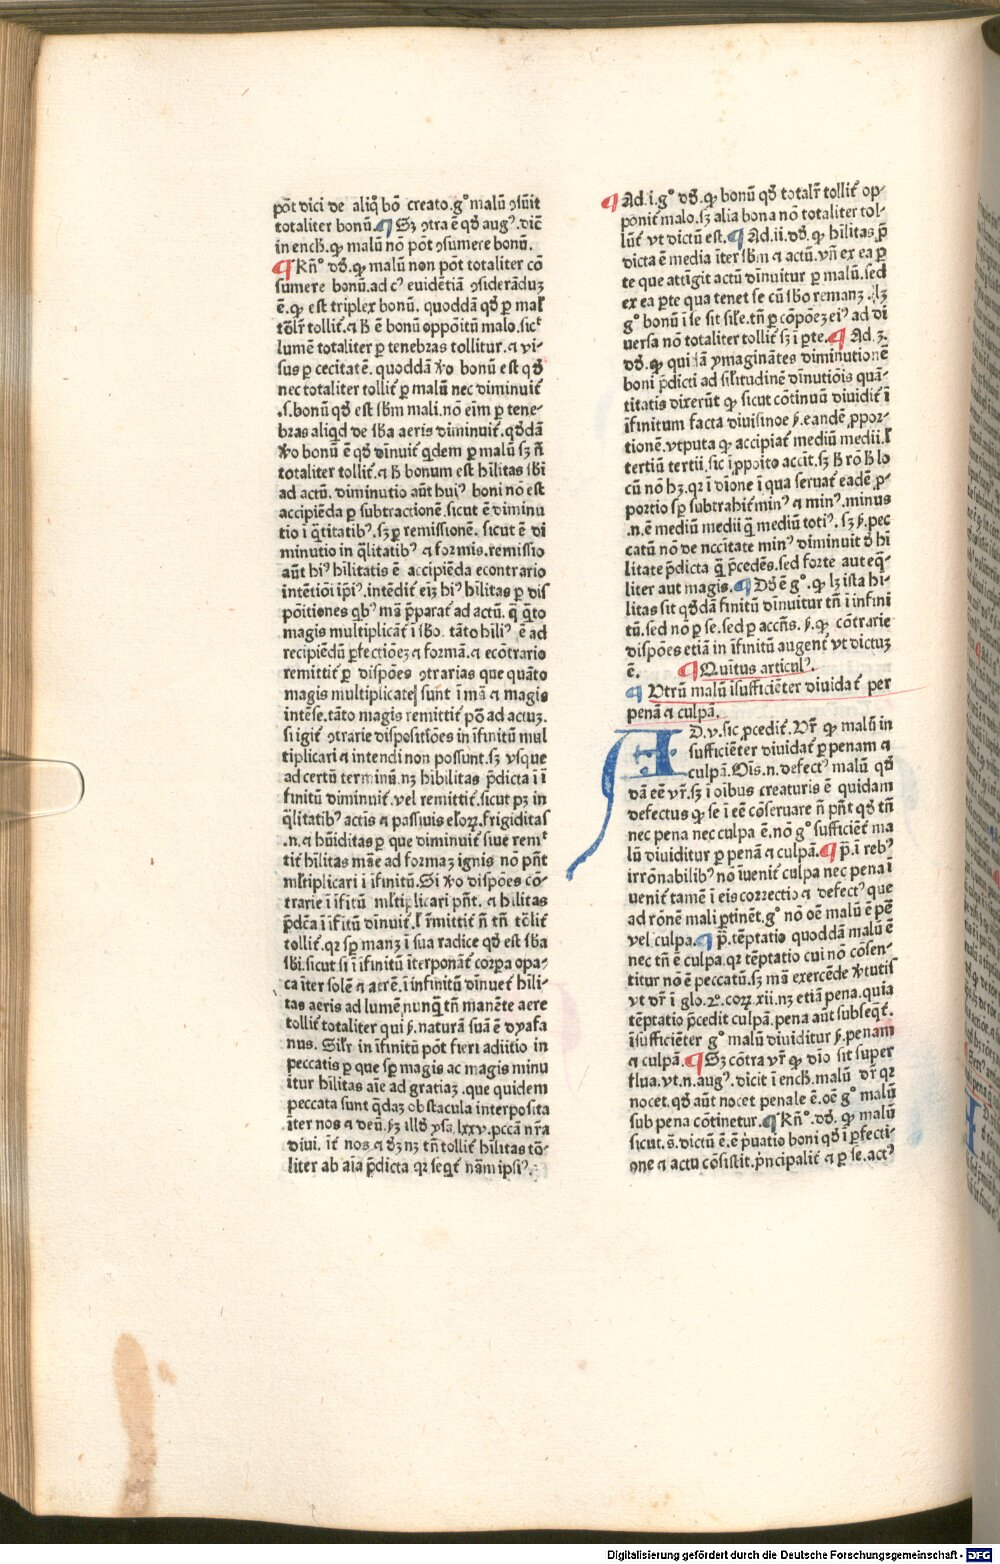 põt dici de aliq̃ bõ creato.g° malũ ꝯsũit
totaliter bonũ.¶ Sꝫ ꝯtra ẽ qđ augꝰ.diĉ
in ench.ꝙ malũ nõ põt ꝯsumere bonũ.
¶ Rñ° dđ.ꝙ malũ non põt totaliter cõ
sumere bonũ.ad cꝰ euidẽtiã ꝯsiderãduꝫ
ẽ.ꝙ est triplex bonũ. quoddã qđ ꝑ maƚ
tõlr̃ tollit̃.⁊ ħ ẽ bonũ oppõitũ malo.sicͭ
lumẽ totaliter ꝑ tenebras tollitur.⁊ vi-
sus ꝑ cecitatẽ. quoddã ꝟo bonũ est qđ
nec totaliter tollit̃ ꝑ malũ nec diminuit̃
.s.bonũ qđ est sb̃m mali.nõ eim̃ ꝑ tene-
bras aliqd de sb̃a aeris diminuit̃.qđdã
ꝟo bonũ ẽ qđ dĩnuit̃ qdem ꝑ malũ sꝫ ñ
totaliter tollit̃.⁊ ħ bonum est hĩlitas sb̃i
ad actũ. diminutio aũt huiꝰ boni nõ est
accipiẽda ꝑ subtractionẽ.sicut ẽ diminu
tio ĩ q̃titatibꝰ.sꝫ ꝑ remissionẽ. sicut ẽ di
minutio in q̃litatibꝰ ⁊ formis.remissio
aũt hiꝰ hĩlitatis ẽ accipiẽda econtrario
intẽtiõi ip̃iꝰ.intẽdit̃ eiꝫ hiꝰ hĩlitas ꝑ dis
põitiones qbꝰ mã p̃parat̃ ad actũ. q̃ q̃to
magis multiplicãt̃ ĩ sb̃o. tãto hĩliꝰ ẽ ad
recipiẽdũ ꝑfectiõeꝫ ⁊ formã.⁊ ecõtrario
remittit̃ ꝑ dispões ꝯtrarias que quãto
magis multiplicate sunt ĩ mã ⁊ magis
intẽse.tãto magis remittit̃ põ ad actuꝫ.
si igit̃ ꝯtrarie dispositiões in ĩfinitũ mul
tiplicari ⁊ intendi non possunt.sꝫ vsque
ad certũ terminũ.nꝫ hibilitas p̃dicta ĩ ĩ
finitũ diminuit̃.vel remittit̃.sicut pꝫ in
q̃litatibꝰ actis ⁊ passiuis eƚoꝝ.frigiditas
.n.⁊ hũiditas ꝑ que diminuit̃ siue remͭ
tit̃ hĩlitas mãe ad formaꝫ ignis nõ pñt
mƚtiplicari ĩ ĩfinitũ.Si ꝟo dispões cõ-
trarie ĩ ĩfitũ mƚtiplicari pñt. ⁊ hĩlitas
p̃dcã ĩ ĩfitũ dĩnuit̃.ƚ r̃mittit̃ ñ tñ tõlit̃
tollit̃.qr sp̃ manꝫ ĩ sua radice qđ est sb̃a
sb̃i.sicut si ĩ ĩfinitũ ĩterponãt̃ corꝑa opa-
ca ĩter solẽ ⁊ aerẽ.ĩ infinitũ dĩnuet̃ hĩli-
tas aeris ad lumẽ,nunq̃ tñ manẽte aere
tollit̃ totaliter qui ẜ.naturã suã ẽ dyafa
nus. Silr̃ in ĩfinitũ põt fieri aditio in
peccatis ꝑ que sp̃ magis ac magis minu
itur hĩlitas aĩe ad gratiaꝫ.que quidem
peccata sunt q̃daꝫ obstacula interposita
ĩter nos ⁊ deũ.ẜꝫ illđ ysa.lxxv.pccã nr̃a
diui. ĩt̃ nos ⁊ đꝫ nꝫ tñ tollit̃ hĩlitas tõ-
liter ab aĩa p̃dicta qr seqt̃ nãm ipsiꝰ.
¶ Ad.i.g° dđ.ꝙ bonũ qđ totalr̃ tollit̃ op-
ponit̃ malo.sꝫ alia bona nõ totaliter tol-
lũt̃ vt dictũ est.¶ Ad.ii.dđ.ꝙ hĩlitas.p̃
dicta ẽ media ĩter sb̃m ⁊ actũ.vñ ex ea ꝑ
te que attĩgit actũ dĩnuitur ꝑ malũ.sed
ex ea ꝑte qua tenet se cũ sb̃o remanꝫ.lꝫ
g° bonũ ĩ se sit sil̃e.tñ ꝑ cõpõeꝫ eiꝰ ad di
uersa nõ totaliter tollit̃ sꝫ ĩ ꝑte.¶ Ad.3.
dđ.ꝙ quidã ymaginãtes diminutionẽ
boni p̃dicti ad sil̃itudinẽ dĩnutiõis quã-
titatis dixerũt ꝙ sicut cõtinuũ diuidit̃ ĩ
ĩfinitum facta diuisinoe ẜ.eandẽ ꝓpor-
tionẽ.vtputa ꝙ accipiat̃ mediũ medii.ƚ
tertiũ tertii.sic ĩ ꝓpoito accĩt.sꝫ ħ rõ ħ lo
cũ nõ hꝫ.qr ĩ dĩone ĩ qua seruat̃ eadẽ ꝓ-
portio sp̃ subtrahit̃ minꝰ ⁊ minꝰ.minus
.n.ẽ mediũ medii q̃ mediũ totiꝰ. sꝫ ẜ.pec
catũ nõ de nccĩtate minꝰ diminuit đ hĩ
litate p̃dicta q̃ p̃cedẽs.sed forte aut eq̃-
liter aut magis.¶ Dđ ẽ g°.ꝙ lꝫ ista hi-
litas sit qđdã finitũ dĩnuitur tñ ĩ infini
tũ.sed nõ ꝑ se.sed ꝑ accñs. ẜ.ꝙ cõtrarie
dispões etiã in ĩfinitũ augent̃ vt dictuꝫ
ẽ. ¶ Quĩtus articulꝰ.
¶ Vtrũ malũ ĩsufficiẽter diuidat̃ per
penã ⁊ culpã.
AD.v.sic ꝓcedit̃.Vr̃ ꝙ malũ in
sufficiẽter diuidat̃ ꝑ penam ⁊
culpã.Ois.n.defectꝰ malũ qđ
dã eẽ vr̃.sꝫ ĩ oĩbus creaturis ẽ quidam
defectus ꝙ se ĩ eẽ cõseruare ñ pñt qđ tñ
nec pena nec culpa ẽ.nõ g° sufficiẽt̃ ma
lũ diuiditur ꝑ penã ⁊ culpã.¶ P̃.ĩ rebꝰ
irrõnabilibꝰ nõ ĩuenit̃ culpa nec pena ĩ
uenit̃ tamẽ ĩ eis correctio ⁊ defectꝰ que
ad rõnẽ mali ꝑtinẽt.g° nõ oẽ malũ ẽ pẽ
vel culpa.¶ P̃.tẽptatio quoddã malũ ẽ
nec tñ ẽ culpa.qr tẽptatio cui nõ cõsen-
titur nõ ẽ peccatũ.sꝫ mã exercẽde ꝟtutis
vt dr̃ ĩ glo.2.coꝝ.xii.nꝫ etiã pena.quia
tẽptatio p̃cedit culpã.pena aũt subseqt̃.
ĩsufficiẽter g° malũ diuiditur ẜ.penam
⁊ culpã.¶ Sꝫ cõtra vr̃ ꝙ dĩo sit super
flua.vt.n.augꝰ.dicit ĩ ench.malũ dr̃ qr
nocet.qđ aũt nocet penale ẽ.oẽ g° malũ
sub pena cõtinetur.¶ Rñ°.dđ.ꝙ malũ
sicut.s̃.dictũ ẽ.ẽ p̃uatio boni qđ ĩ ꝑfecti-
one ⁊ actu cõsistit.p̃ncipalit̃ ⁊ ꝑ se.actꝰ
Digitalisierung gefördert durch die Deutsche Forschungsgemeinschaft - DFG